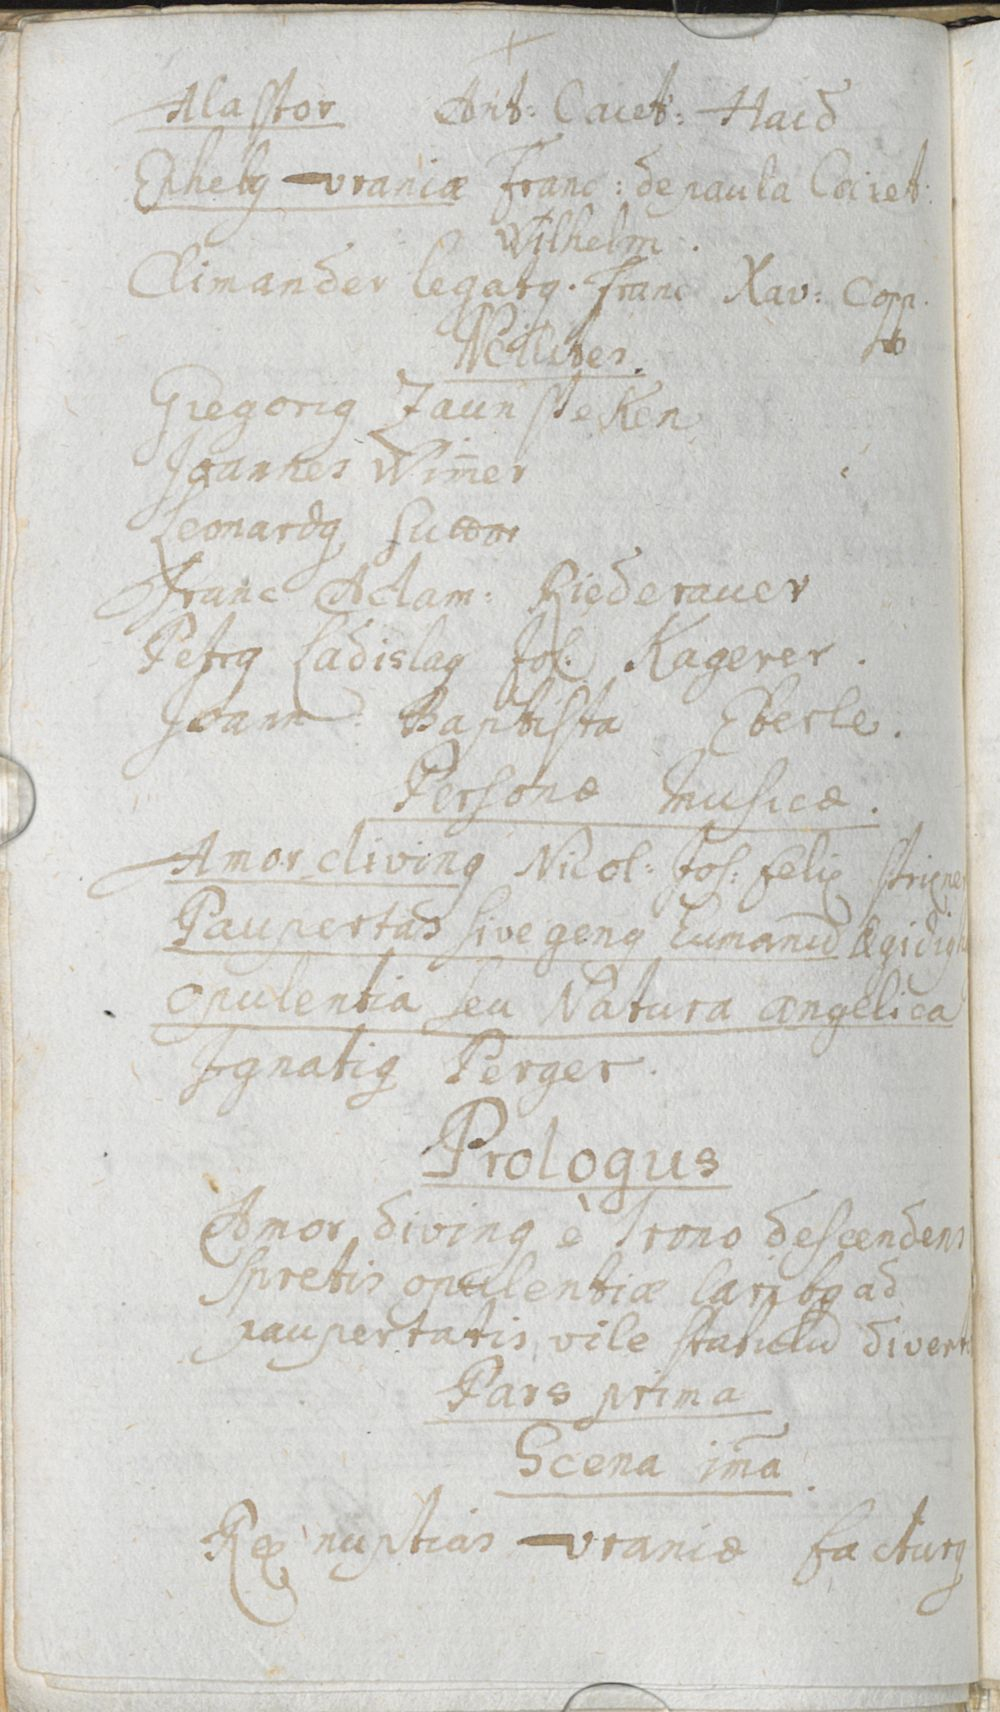 Alastor Ant: Caiet: Haid
Ephebꝰ uraniæ Franc: de paula Caiet:
Wilhelm.
Climander legatꝰ. Franc Xav: Copp
Milites.
Gregoriꝰ Zaunsteken
Joannes Wim̄er
Leonardꝰ
Franc Adam: Riederauer
Petrꝰ Ladislaꝰ Jos: Kagerer.
Joann: Baptista Eberle.
Personæ musicæ.
Amor divinꝰ Nicol: Jos: felix strixner
Paupertas sive genꝰ humanū Ægidiꝰ
opulentia seu Natura angelica
Ignatiꝰ Perger.
Prologus
Amor divinꝰ è trono descendens
spretis opulentiæ laribꝰ ad
paupertatis vile stabulū divert
Pars prima
Scena im̄a.
Rex nuptias uraniæ facturꝰ